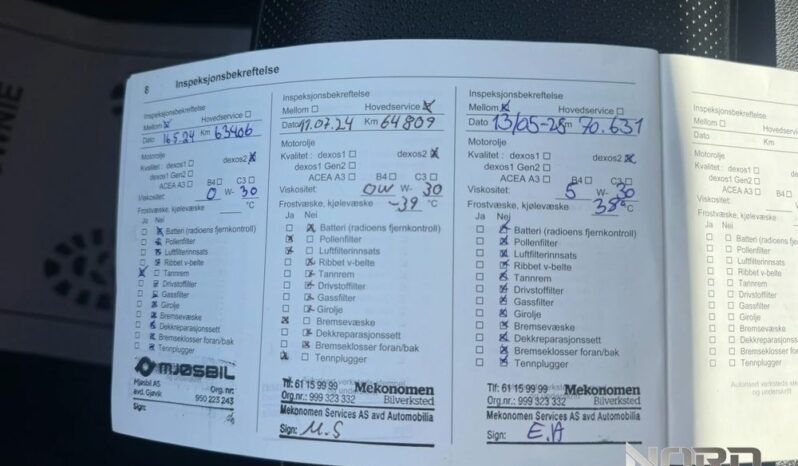 8 Inspeksjonsbekreftelse
Inspeksjonsbekreftelse
Mellom ☒ Hovedservice ☐
Dato 16.5.24 Km 63406
Motorolje
Kvalitet: dexos1 ☐ dexos2 ☒
dexos1 Gen2 ☐
ACEA A3 ☐ B4 ☐ C3 ☐
Viskositet: 0 W- 30
Frostvæske, kjølevæske °C
Ja Nei
☐ ☒ Batteri (radioens fjernkontroll)
☐ ☒ Pollenfilter
☐ ☒ Luftfilterinnsats
☐ ☒ Ribbet v-belte
☒ ☐ Tannrem
☐ ☒ Drivstoffilter
☐ ☒ Gassfilter
☐ ☒ Girolje
☐ ☒ Bremsevæske
☐ ☒ Dekkreparasjonssett
☐ ☒ Bremseklosser foran/bak
☐ ☒ Tennplugger
MJØSBIL
Mjøsbil AS Org. nr:
avd. Gjøvik 950 223 243
Sign:
Inspeksjonsbekreftelse
Mellom ☐ Hovedservice ☒
Dato 11.07.24 Km 64809
Motorolje
Kvalitet : dexos1 ☐ dexos2 ☒
dexos1 Gen2 ☐
ACEA A3 ☐ B4 ☐ C3 ☐
Viskositet: 0W W- 30
Frostvæske, kjølevæske -39 °C
Ja Nei
☐ ☒ Batteri (radioens fjernkontroll)
☒ ☐ Pollenfilter
☒ ☐ Luftfilterinnsats
☐ ☒ Ribbet v-belte
☐ ☒ Tannrem
☐ ☒ Drivstoffilter
☐ ☒ Gassfilter
☐ ☒ Girolje
☒ ☐ Bremsevæske
☐ ☒ Dekkreparasjonssett
☐ ☒ Bremseklosser foran/bak
☒ ☐ Tennplugger
Tlf: 61 15 99 99 Mekonomen
Org.nr.: 999 323 332 Bilverksted
Mekonomen Services AS avd Automobilia
Sign: M.S
Inspeksjonsbekreftelse
Mellom ☒ Hovedservice ☐
Dato 13/05-25 Km 70.631
Motorolje
Kvalitet : dexos1 ☐ dexos2 ☒
dexos1 Gen2 ☐
ACEA A3 ☐ B4 ☐ C3 ☐
Viskositet: 5 W- 30
Frostvæske, kjølevæske 38° °C
Ja Nei
☐ ☒ Batteri (radioens fjernkontroll)
☐ ☒ Pollenfilter
☐ ☒ Luftfilterinnsats
☐ ☒ Ribbet v-belte
☐ ☒ Tannrem
☐ ☒ Drivstoffilter
☐ ☒ Gassfilter
☐ ☒ Girolje
☐ ☒ Bremsevæske
☐ ☒ Dekkreparasjonssett
☐ ☒ Bremseklosser foran/bak
☐ ☒ Tennplugger
Tlf: 61 15 99 99 Mekonomen
Org.nr.: 999 323 332 Bilverksted
Mekonomen Services AS avd Automobilia
Sign: E.A
Inspeksjonsbekreftelse
Mellom ☐
Dato Km
Motorolje
Kvalitet : dexos1 ☐
dexos1 Gen2 ☐
ACEA A3 ☐
Viskositet:
Frostvæske, kjølevæske
Ja Nei
☐ ☐ Batteri (radioens
☐ ☐ Pollenfilter
☐ ☐ Luftfilterinnsats
☐ ☐ Ribbet v-belte
☐ ☐ Tannrem
☐ ☐ Drivstoffilter
☐ ☐ Gassfilter
☐ ☐ Girolje
☐ ☐ Bremsevæske
☐ ☐ Dekkreparasjonssett
☐ ☐ Bremseklosser for
☐ ☐ Tennplugger
Autorisert verksteds
og underskrift
NORD
WNIE